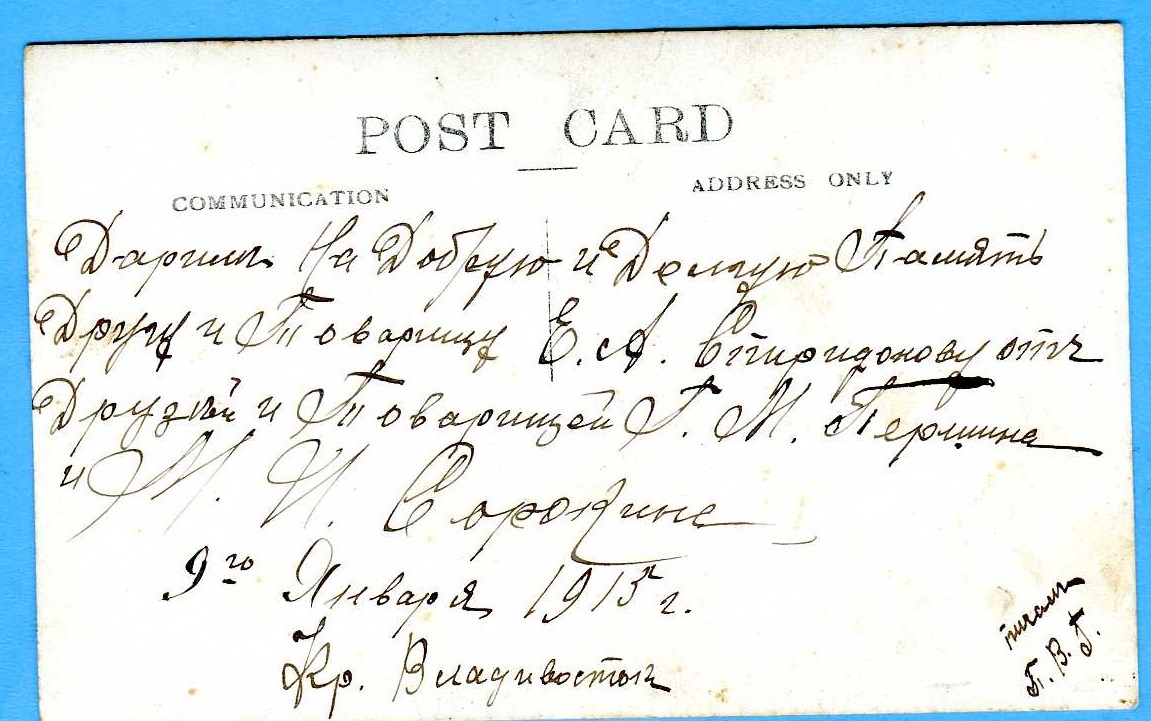 POST CARD
COMMUNICATION
ADDRESS ONLY
Дарим На Добрую и Долгую Память
Другу и Товарищу Е. А. Спиридонову отъ
Друзей и Товарищей Г. М. Першина
и М. И. Сорокина
9го Января 1915 г.
Кр. Владивосток
писалъ
П. В. Г.